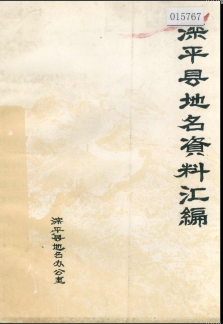 015767
滦平县地名資料汇编
滦平县地名办公室